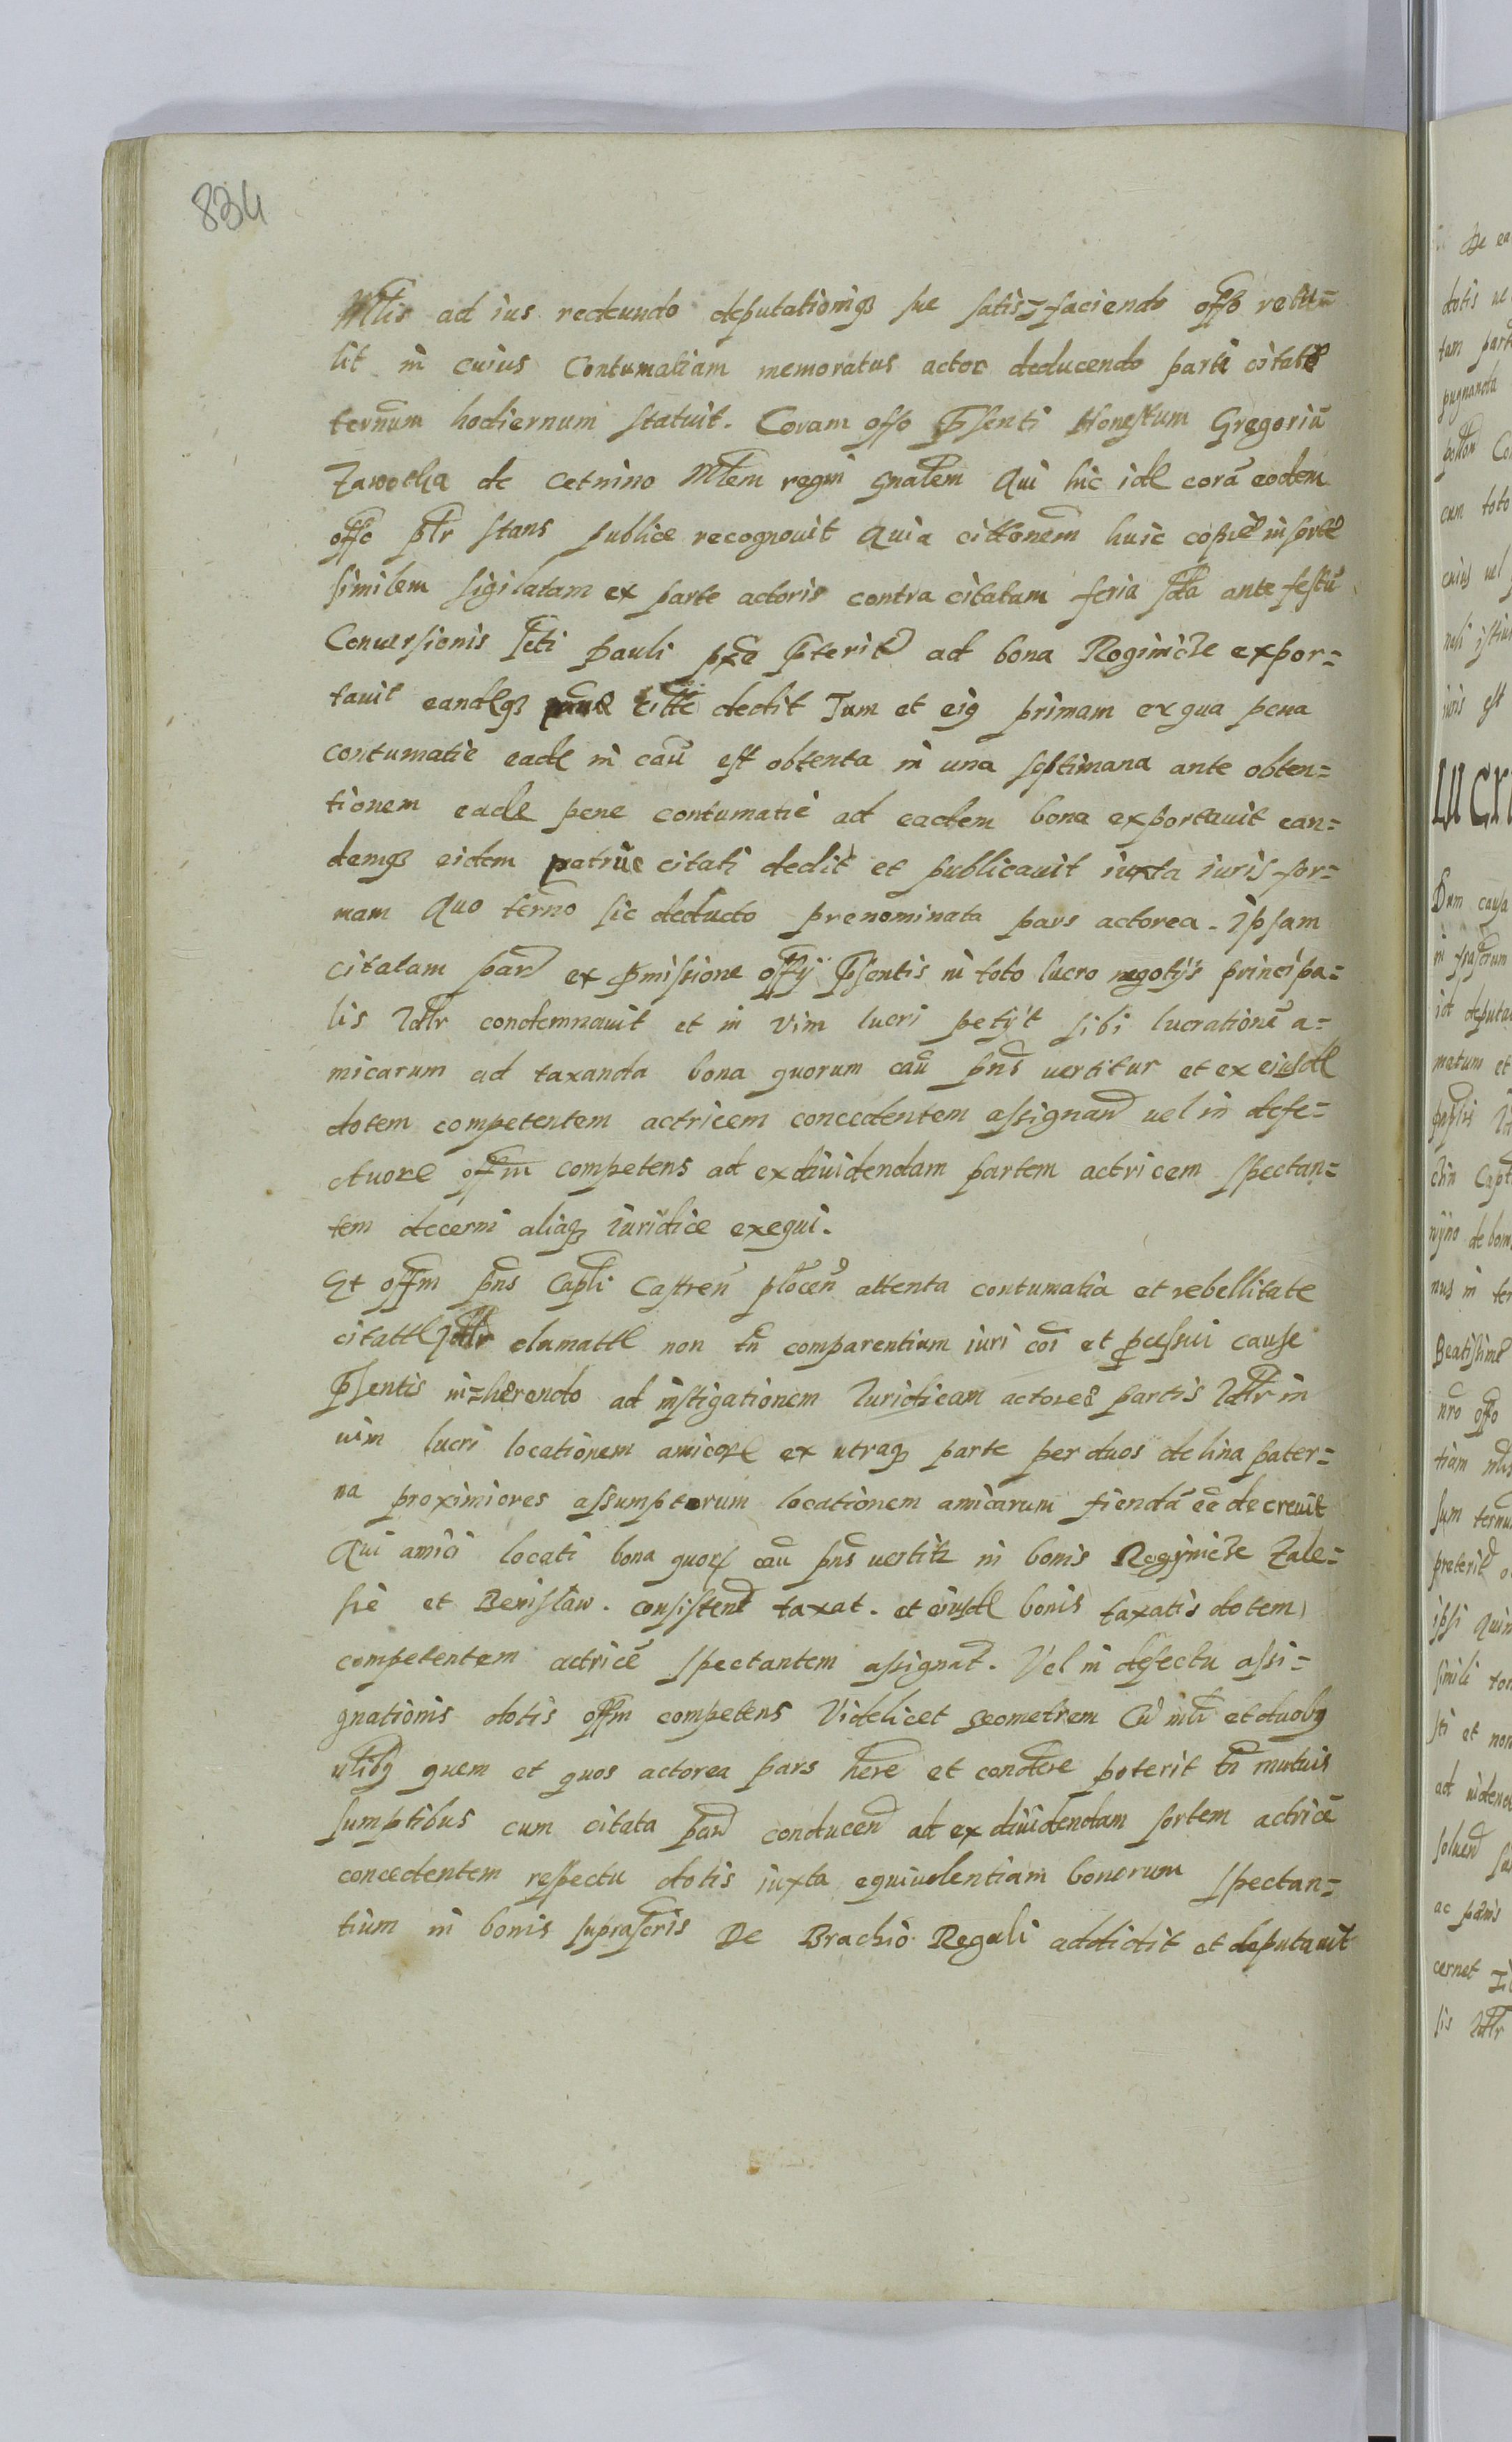 834
Mtis ad ius redeundo deputationiq3 sue satis-faciendo offo retu=
lit in cuius Contumatiam memoratus actor deducendo parti citate
ternum hodiernum statuit. Coram offo psenti Honestum Gregoriū
Zawotka de Cetnino Mtem regni gnalem Qui hic idē corā eodem
offo ptr stans publice recognouit Quia cittonem huic copie inserte
similem sigilatam ex parte actoris contra citatam feria sda ante festū
Conuersionis scti Pauli pxe pterit ad bona Roginicze expor=
tauit eandēq3 citte dedit Tum et eiq primam ex qua pena
contumatie eadē in cau est obtenta in una septimana ante obten=
tionem eadē pene contumatie ad eadem bona exportauit ean=
demq3 eidem patrue citati dedit et publicauit iuxta iuris for=
mam Quo terno sic deducto prenominata pars actorea. Ipsam
citatam par ex pmissione offÿ psentis in toto lucro negotÿs principa=
lis Idlr condemnauit et in vim lucri petÿt sibi lucrationē a=
micarum ad taxanda bona quorum cau pns uertitur et ex eiusdē
dotem competentem actricem concedentem assignan uel in defe=
ctuore offm competens ad exdiuidendam partem actricem spectan=
tem decerni aliaq3 iuridice exequi.
Et offm pns Capli Castren plocen attenta contumatia et rebellitate
citatte clamatte non tn comparentium iuri coi et pcessui cause
psentis in=herendo ad instigationem Iuridicam actoree partis Idlr in
uim lucri locationem amicorē ex utraq3 parte per duos de lina pater=
na proximiores assumptorum locationem amicarum fiendā eē decreuit
Qui amici locati bona quorē cau pns uertitr in bonis Rogÿnicze Zale=
sie et Benislaw. consistent taxat. et eiusdē bonis taxatis dotem
competentem actricē spectantem assignat. Vel in defectu assi=
gnationis dotis offm competens Videlicet geometrem Cū mli et duobq
utibq quem et quos actorea pars here et condere poterit tn mutuis
sumptibus cum citata par conducen ad exdiuidendam sortem actricē
concedentem respectu dotis iuxta equiualentiam bonorum spectan=
tium in bonis suprascris De Brachio Regali addidit et deputauit
De ea
dotis ue
tam part
pugnanda
cum toto
cuius uel
iuris est
Lucr
Dum causa
id deputa
matum et
Capt
de bon
nus in ter
Beatissime
nro offo
tiam
sum ternu
preterit
ipsi Quin
simili
sti et non
ad uidend
soluen
ac
cernet
lis Idlr